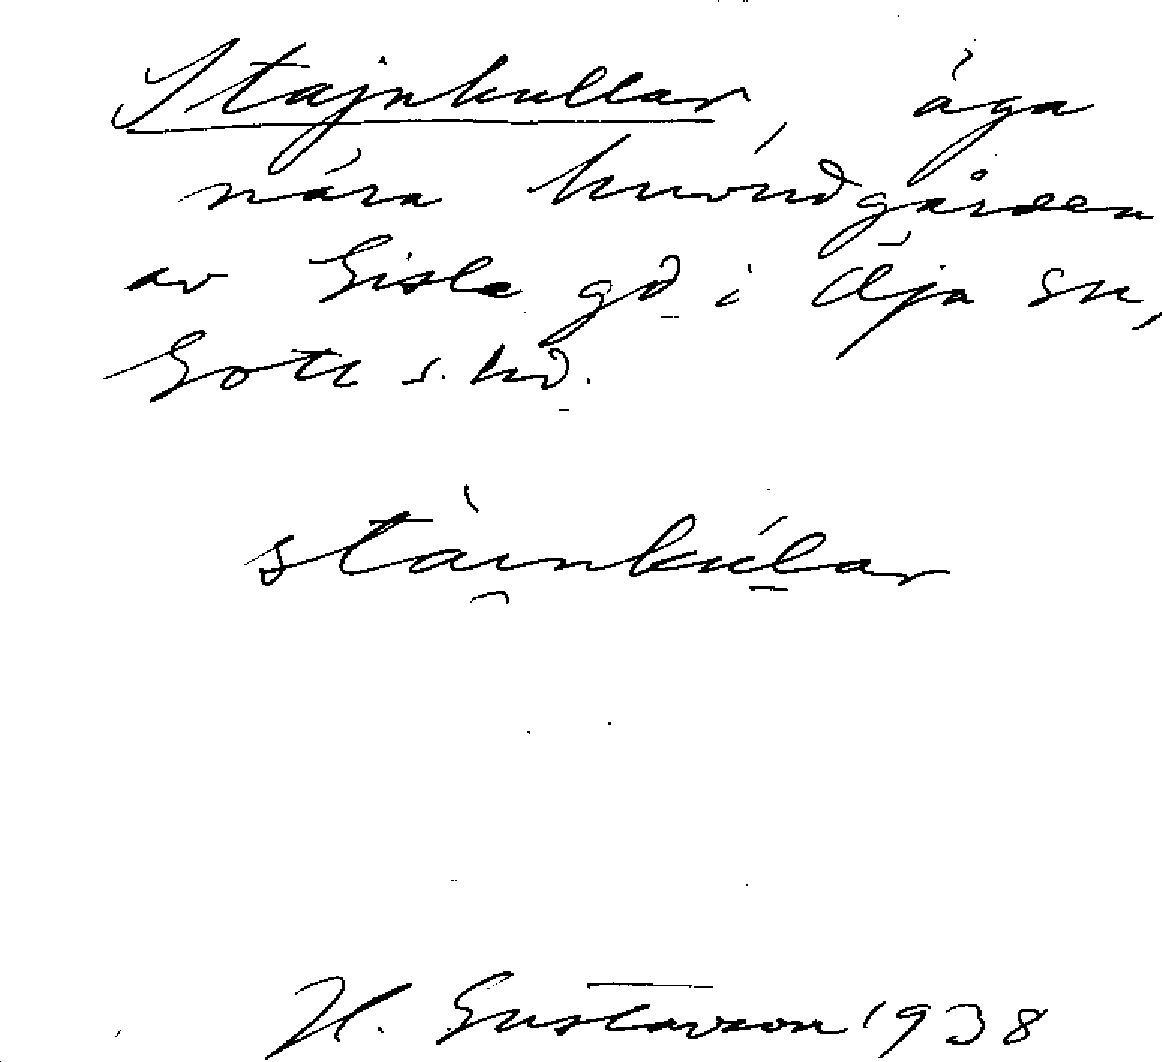 Stajnkullar, äga
nära huvudgården
av Gisle gd i Öja sn,
Gotl s. hd.
stài̯nkúl̲ar
H. Gustavson 1938